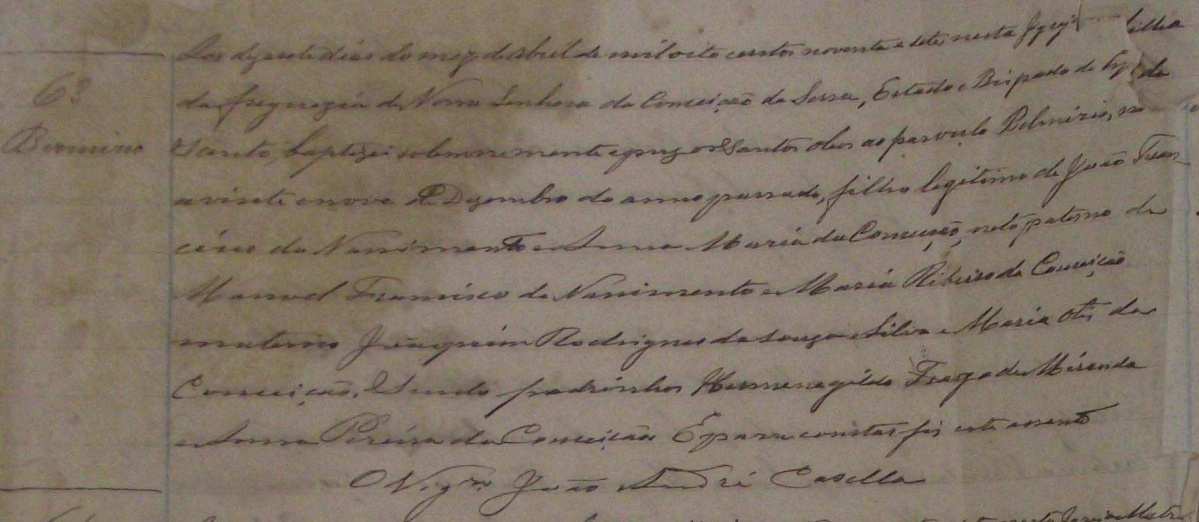 Aos dezasete dias do mez de abril de mil oito centos noventa e sete, nesta Igreja
63
da freguezia de Nossa Senhora da Conceição da Serra, Estado e Bispado do
Santo, baptizei solemnemente e puz os Santos oleos ao parvulo
a vinte e nove de Dezembro do anno passado, filho legitimo de João Fran-
cisco do Nascimento e Anna Maria da Conceição, neto paterno de
Manoel Francisco do Nascimento e Maria Ribeiro da Conceição
materno Joaquim Rodrigues de Souza e Silva e Maria da
Conceição. Sendo padrinhos Hermenegildo Fraga de Miranda
e Anna Pereira da Conceição E para constar fiz este assento
O Vigrº João André Casella